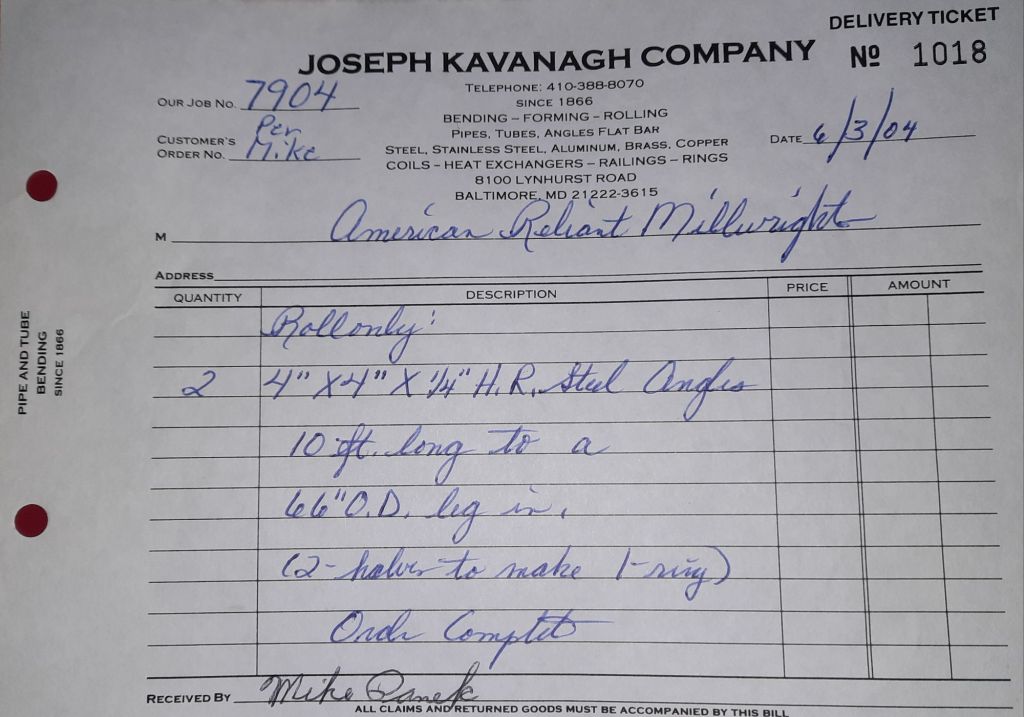 DELIVERY TICKET
JOSEPH KAVANAGH COMPANY
Nº 1018
TELEPHONE: 410-388-8070
SINCE 1866
BENDING – FORMING – ROLLING
PIPES, TUBES, ANGLES FLAT BAR
STEEL, STAINLESS STEEL, ALUMINUM, BRASS, COPPER
COILS – HEAT EXCHANGERS – RAILINGS – RINGS
8100 LYNHURST ROAD
BALTIMORE, MD 21222-3615
OUR JOB NO. 7904
CUSTOMER'S ORDER NO. Per Mike
DATE 6/3/04
M American Reliant Millwright
ADDRESS
QUANTITY DESCRIPTION PRICE AMOUNT
Roll only:
2 4" X 4" X 1/4" H.R. Steel Angles
10 ft. long to a
66" O.D. leg in.
(2-halves to make 1-ring)
Order Complete
RECEIVED BY Mike Panek
ALL CLAIMS AND RETURNED GOODS MUST BE ACCOMPANIED BY THIS BILL
PIPE AND TUBE
BENDING
SINCE 1866